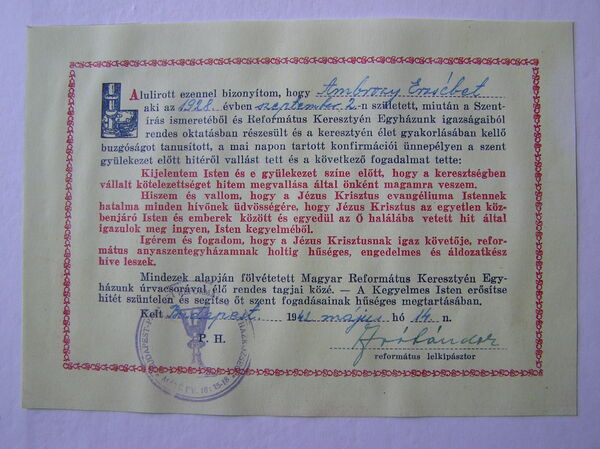 Alulirott ezennel bizonyítom, hogy Ambrózy Erzsébet
aki az 1928. évben szeptember 2-n született, miután a Szent-
írás ismeretéből és Református Keresztyén Egyházunk igazságaiból
rendes oktatásban részesült és a keresztyén élet gyakorlásában kellő
buzgóságot tanusított, a mai napon tartott konfirmációi ünnepélyen a szent
gyülekezet előtt hitéről vallást tett és a következő fogadalmat tette:
Kijelentem Isten és e gyülekezet színe előtt, hogy a keresztségben
vállalt kötelezettséget hitem megvallása által önként magamra veszem.
Hiszem és vallom, hogy a Jézus Krisztus evangéliuma Istennek
hatalma minden hívőnek üdvösségére, hogy Jézus Krisztus az egyetlen köz-
benjáró Isten és emberek között és egyedül az Ő halálába vetett hit által
igazulok meg ingyen, Isten kegyelméből.
Igérem és fogadom, hogy a Jézus Krisztusnak igaz követője, refor-
mátus anyaszentegyházamnak holtig hűséges, engedelmes és áldozatkész
híve leszek.
Mindezek alapján fölvétetett Magyar Református Keresztyén Egy-
házunk úrvacsorával élő rendes tagjai közé. — A Kegyelmes Isten erősítse
hitét szüntelen és segítse őt szent fogadásainak hűséges megtartásában.
Kelt Budapest 1942 május hó 14 n.
P. H.
református lelkipásztor
BUDAPEST